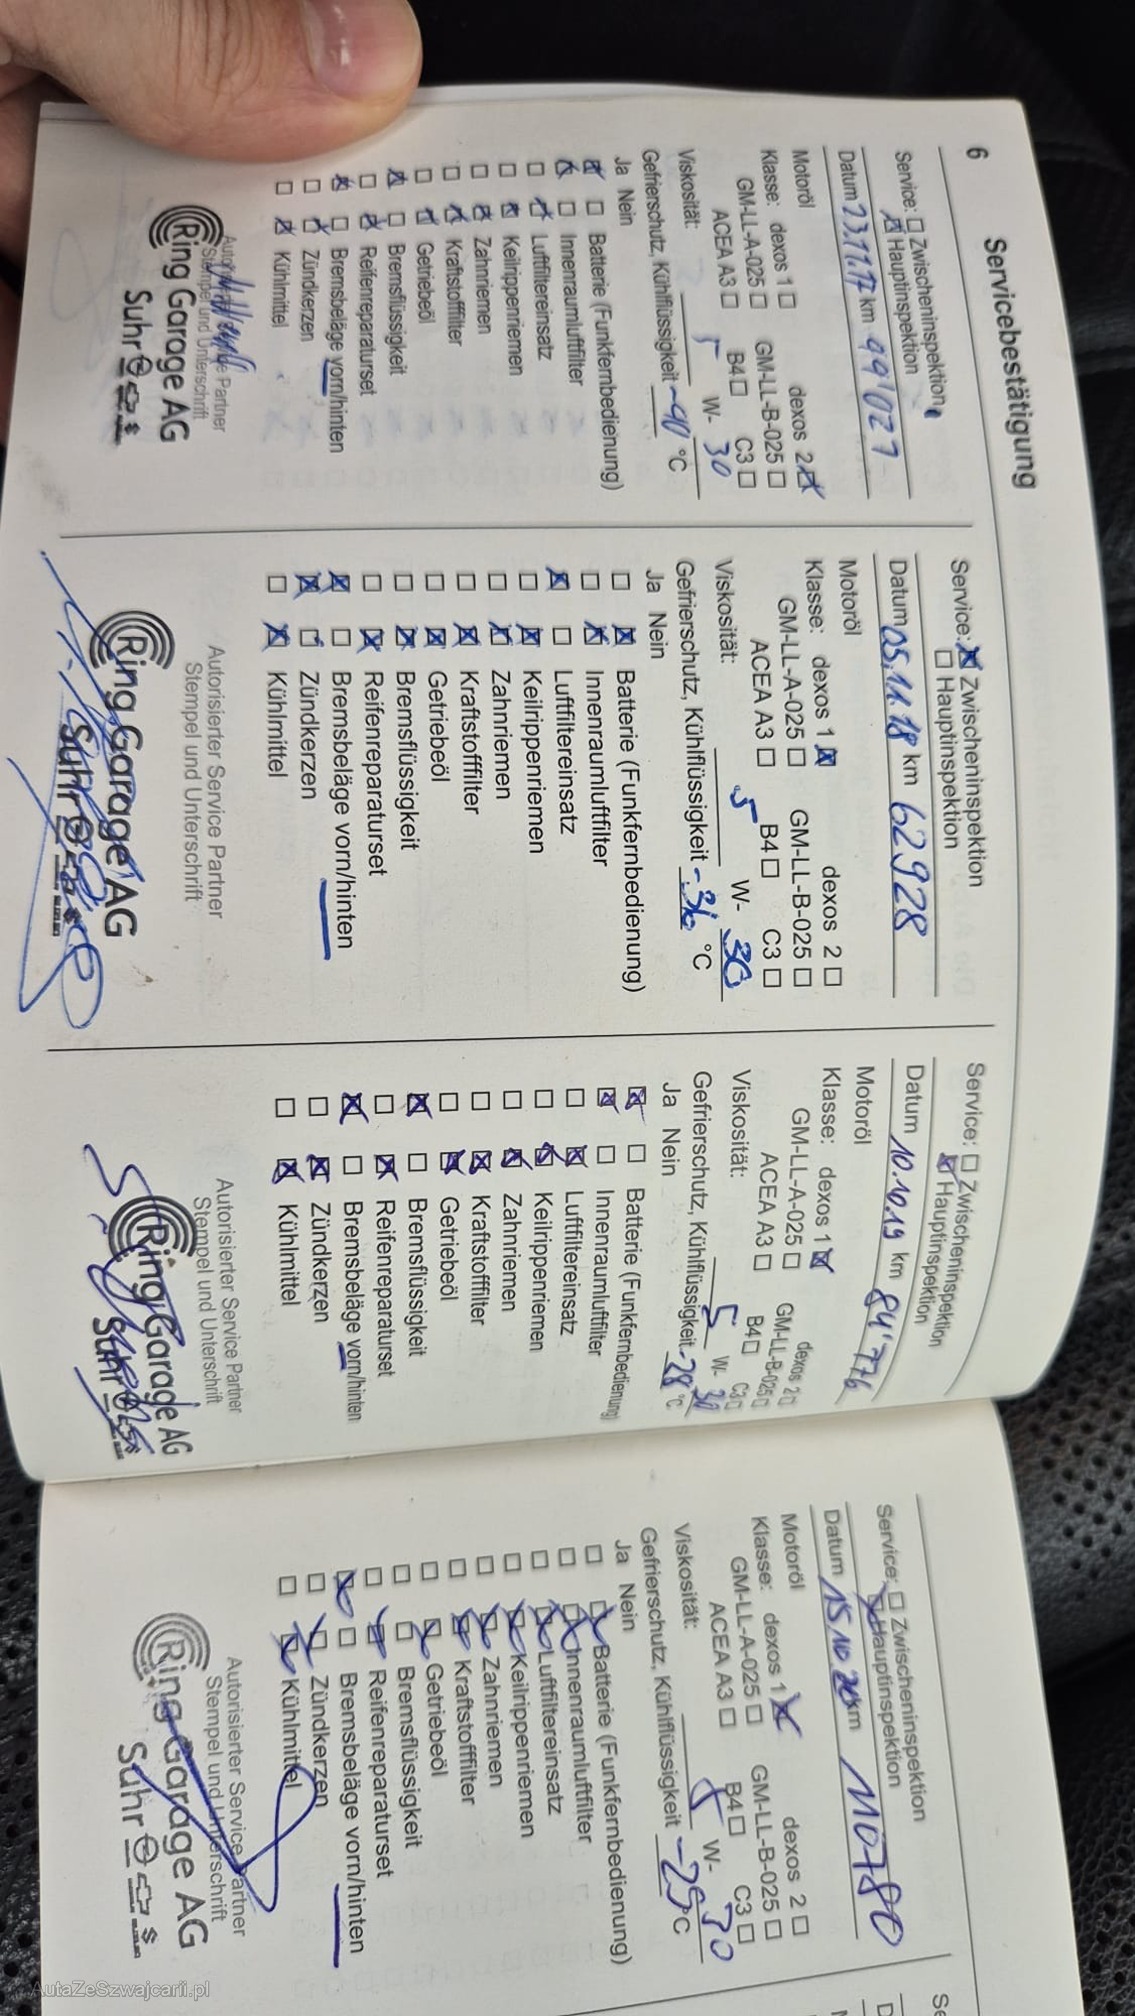 6
Servicebestätigung
Service: Zwischeninspektion
Hauptinspektion
Datum 23.11.17 km
Motoröl
Klasse: dexos 1 dexos 2
GM-LL-A-025 GM-LL-B-025
ACEA A3 B4 C3
Viskosität: 5 W- 30
Gefrierschutz, Kühlflüssigkeit -40 °C
Ja Nein
Batterie (Funkfernbedienung)
Innenraumluftfilter
Luftfiltereinsatz
Keilrippenriemen
Zahnriemen
Kraftstofffilter
Getriebeöl
Bremsflüssigkeit
Reifenreparaturset
Bremsbeläge vorn/hinten
Zündkerzen
Kühlmittel
Autorisierter Service Partner
Stempel und Unterschrift
Ring Garage AG
Suhr
Service: Zwischeninspektion
Hauptinspektion
Datum 05.11.18 km 62928
Motoröl
Klasse: dexos 1 dexos 2
GM-LL-A-025 GM-LL-B-025
ACEA A3 B4 C3
Viskosität: 5 W- 30
Gefrierschutz, Kühlflüssigkeit -36 °C
Ja Nein
Batterie (Funkfernbedienung)
Innenraumluftfilter
Luftfiltereinsatz
Keilrippenriemen
Zahnriemen
Kraftstofffilter
Getriebeöl
Bremsflüssigkeit
Reifenreparaturset
Bremsbeläge vorn/hinten
Zündkerzen
Kühlmittel
Autorisierter Service Partner
Stempel und Unterschrift
Ring Garage AG
Suhr
Service: Zwischeninspektion
Hauptinspektion
Datum 10.10.19 km 84'776
Motoröl
Klasse: dexos 1 dexos 2
GM-LL-A-025 GM-LL-B-025
ACEA A3 B4 C3
Viskosität: 5 W- 30
Gefrierschutz, Kühlflüssigkeit -28 °C
Ja Nein
Batterie (Funkfernbedienung)
Innenraumluftfilter
Luftfiltereinsatz
Keilrippenriemen
Zahnriemen
Kraftstofffilter
Getriebeöl
Bremsflüssigkeit
Reifenreparaturset
Bremsbeläge vorn/hinten
Zündkerzen
Kühlmittel
Autorisierter Service Partner
Stempel und Unterschrift
Ring Garage AG
Suhr
Service: Zwischeninspektion
Hauptinspektion
Datum 15.10.20 km 110780
Motoröl
Klasse: dexos 1 dexos 2
GM-LL-A-025 GM-LL-B-025
ACEA A3 B4 C3
Viskosität: 5 W- 30
Gefrierschutz, Kühlflüssigkeit -25 °C
Ja Nein
Batterie (Funkfernbedienung)
Innenraumluftfilter
Luftfiltereinsatz
Keilrippenriemen
Zahnriemen
Kraftstofffilter
Getriebeöl
Bremsflüssigkeit
Reifenreparaturset
Bremsbeläge vorn/hinten
Zündkerzen
Kühlmittel
Autorisierter Service Partner
Stempel und Unterschrift
Ring Garage AG
Suhr
AutaZeSzwajcarii.pl